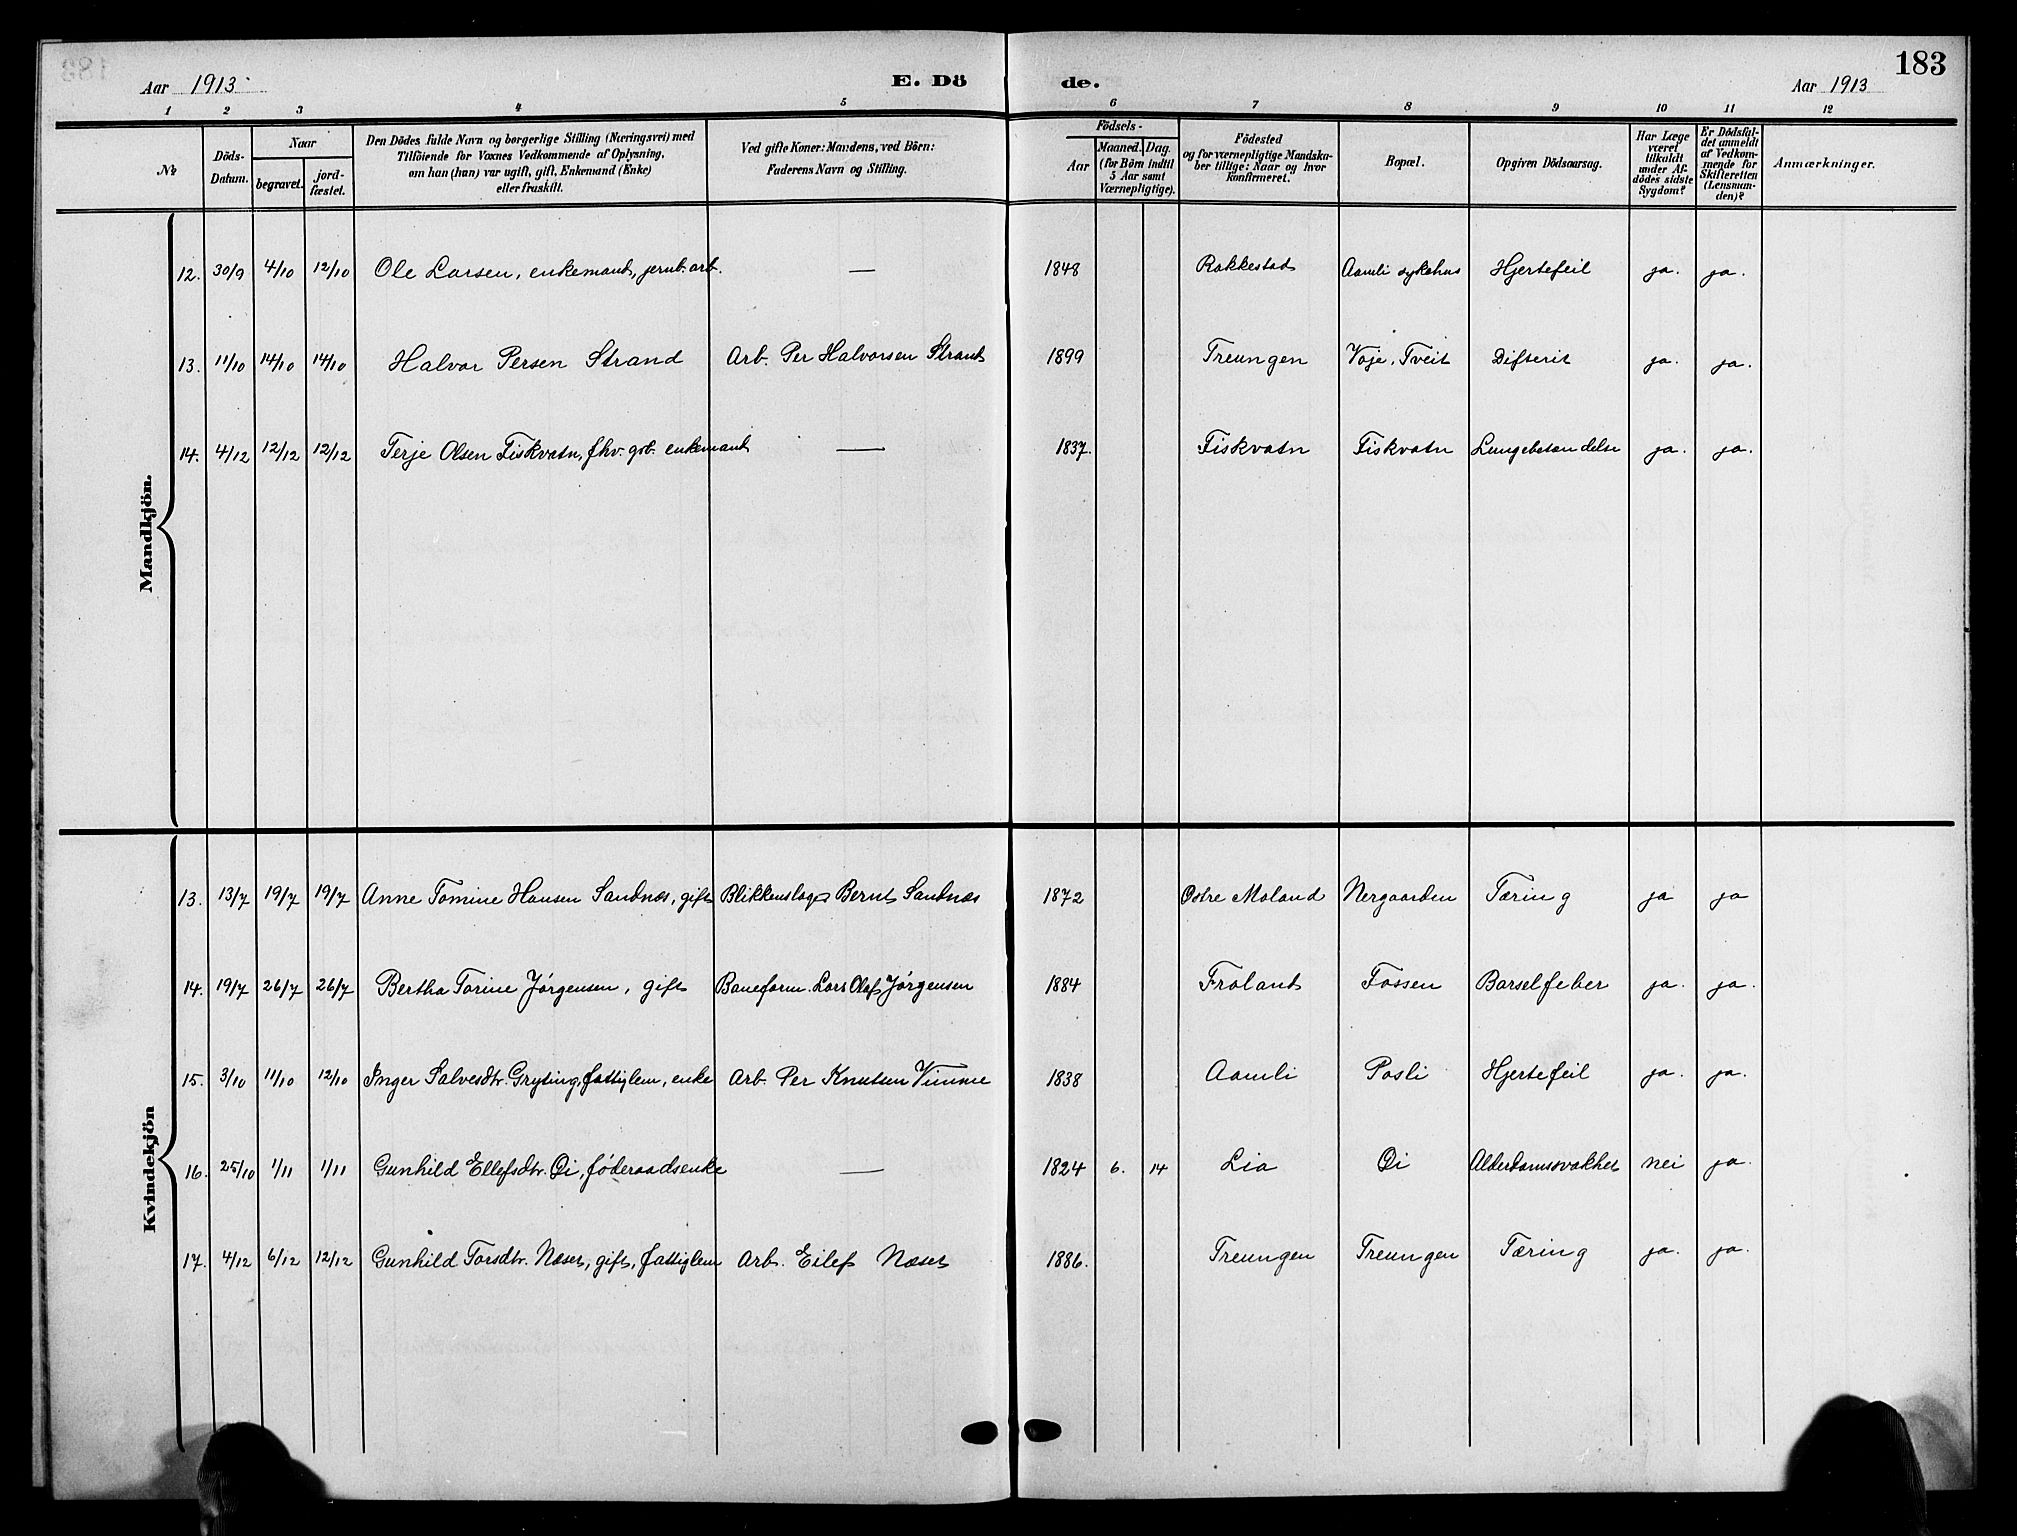 Aar 1913 E. Dö de. Aar 1913 183
1 2 3 4 5 6 7 8 9 10 11 12
No Döds-Datum. Naar begravet. jord-fæstet. Den Dödes fulde Navn og borgerlige Stilling (Næringsvei) med Tilföiende for Voxnes Vedkommende af Oplysning, om han (hun) var ugift, gift, Enkemand (Enke) eller fraskilt. Ved gifte Koner: Mandens, ved Börn: Faderens Navn og Stilling. Födsels- Aar Maaned. Dag. (for Börn indtil 5 Aar samt Værnepligtige). Födested og for værnepligtige Mandska-ber tillige: Naar og hvor konfirmeret. Bopæl. Opgiven Dödsaarsag. Har Læge været tilkaldt under Af-dödes sidste Sygdom? Er Dödsfal-det anmeldt af Vedkom-mende for Skifteretten (Lensman-den)? Anmærkninger.
Mandkjön.
12. 30/9 4/10 12/10 Ole Larsen, enkemand, jernb. arb. — 1848 Rakkestad Aamli sykehus Hjertefeil ja. ja.
13. 11/10 14/10 14/10 Halvor Persen Strand Arb. Per Halvorsen Strand 1899 Treungen Voje, Tveit Difterit ja. ja.
14. 4/12 12/12 12/12 Terje Olsen Fiskvatn, fhv. gb. enkemand — 1837. Fiskvatn Fiskvatn Lungebetændelse ja. ja.
Kvindekjön
13. 13/7 19/7 19/7 Anne Tomine Hansen Sandnæs, gift Blikkenslager Bernt Sandnæs 1872 Østre Moland Nergaarden Tæring ja ja
14. 19/7 26/7 26/7 Bertha Torine Jørgensen, gift Baneform. Lars Olaf Jørgensen 1884 Froland Fossen Barselfeber ja. ja.
15. 3/10 11/10 12/10 Inger Salvesdtr. Gryting, fattiglem, enke Arb. Per Knutsen Vimme 1838 Aamli Posli Hjertefeil ja. ja.
16. 25/10 1/11 1/11 Gunhild Ellefsdtr. Øi, føderaadsenke — 1824 6. 14 Lia Øi Alderdomssvakhet nei ja.
17. 4/12 6/12 12/12 Gunhild Torsdtr. Næset, gift, fattiglem Arb. Eilef Næset 1886. Treungen Treungen Tæring ja. ja.